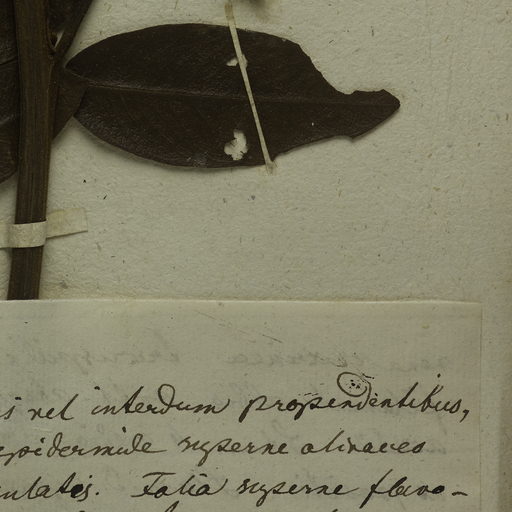 is vel interdum propendentibus,
epidermide superne olivaceo
ulatis. Folia superne flavo-